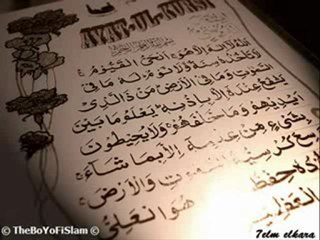 AYAT-UL-KURSI
اَللّٰهُ لَآ اِلٰهَ اِلَّا هُوَ اَلْحَيُّ الْقَيُّوْمُ
لَا تَاْخُذُهٗ سِنَةٌ وَّلَا نَوْمٌ لَهٗ مَا فِي
السَّمٰوٰتِ وَمَا فِي الْاَرْضِ مَنْ ذَا الَّذِيْ
يَشْفَعُ عِنْدَهٗٓ اِلَّا بِاِذْنِهٖ يَعْلَمُ مَا بَيْنَ
اَيْدِيْهِمْ وَمَا خَلْفَهُمْ وَلَا يُحِيْطُوْنَ
بِشَيْءٍ مِّنْ عِلْمِهٖٓ اِلَّا بِمَا شَآءَ
سِعَ كُرْسِيُّهُ السَّمٰوٰتِ وَالْاَرْضَ
دُهٗ حِفْظُ هُوَ الْعَلِيُّ
الْعَظِيْمُ
© TheBoYoFiSlam ©
7elm elkara